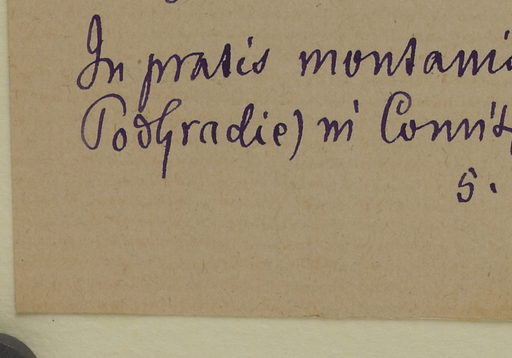 In pratis montanis
Podhradie) in Comit
5.